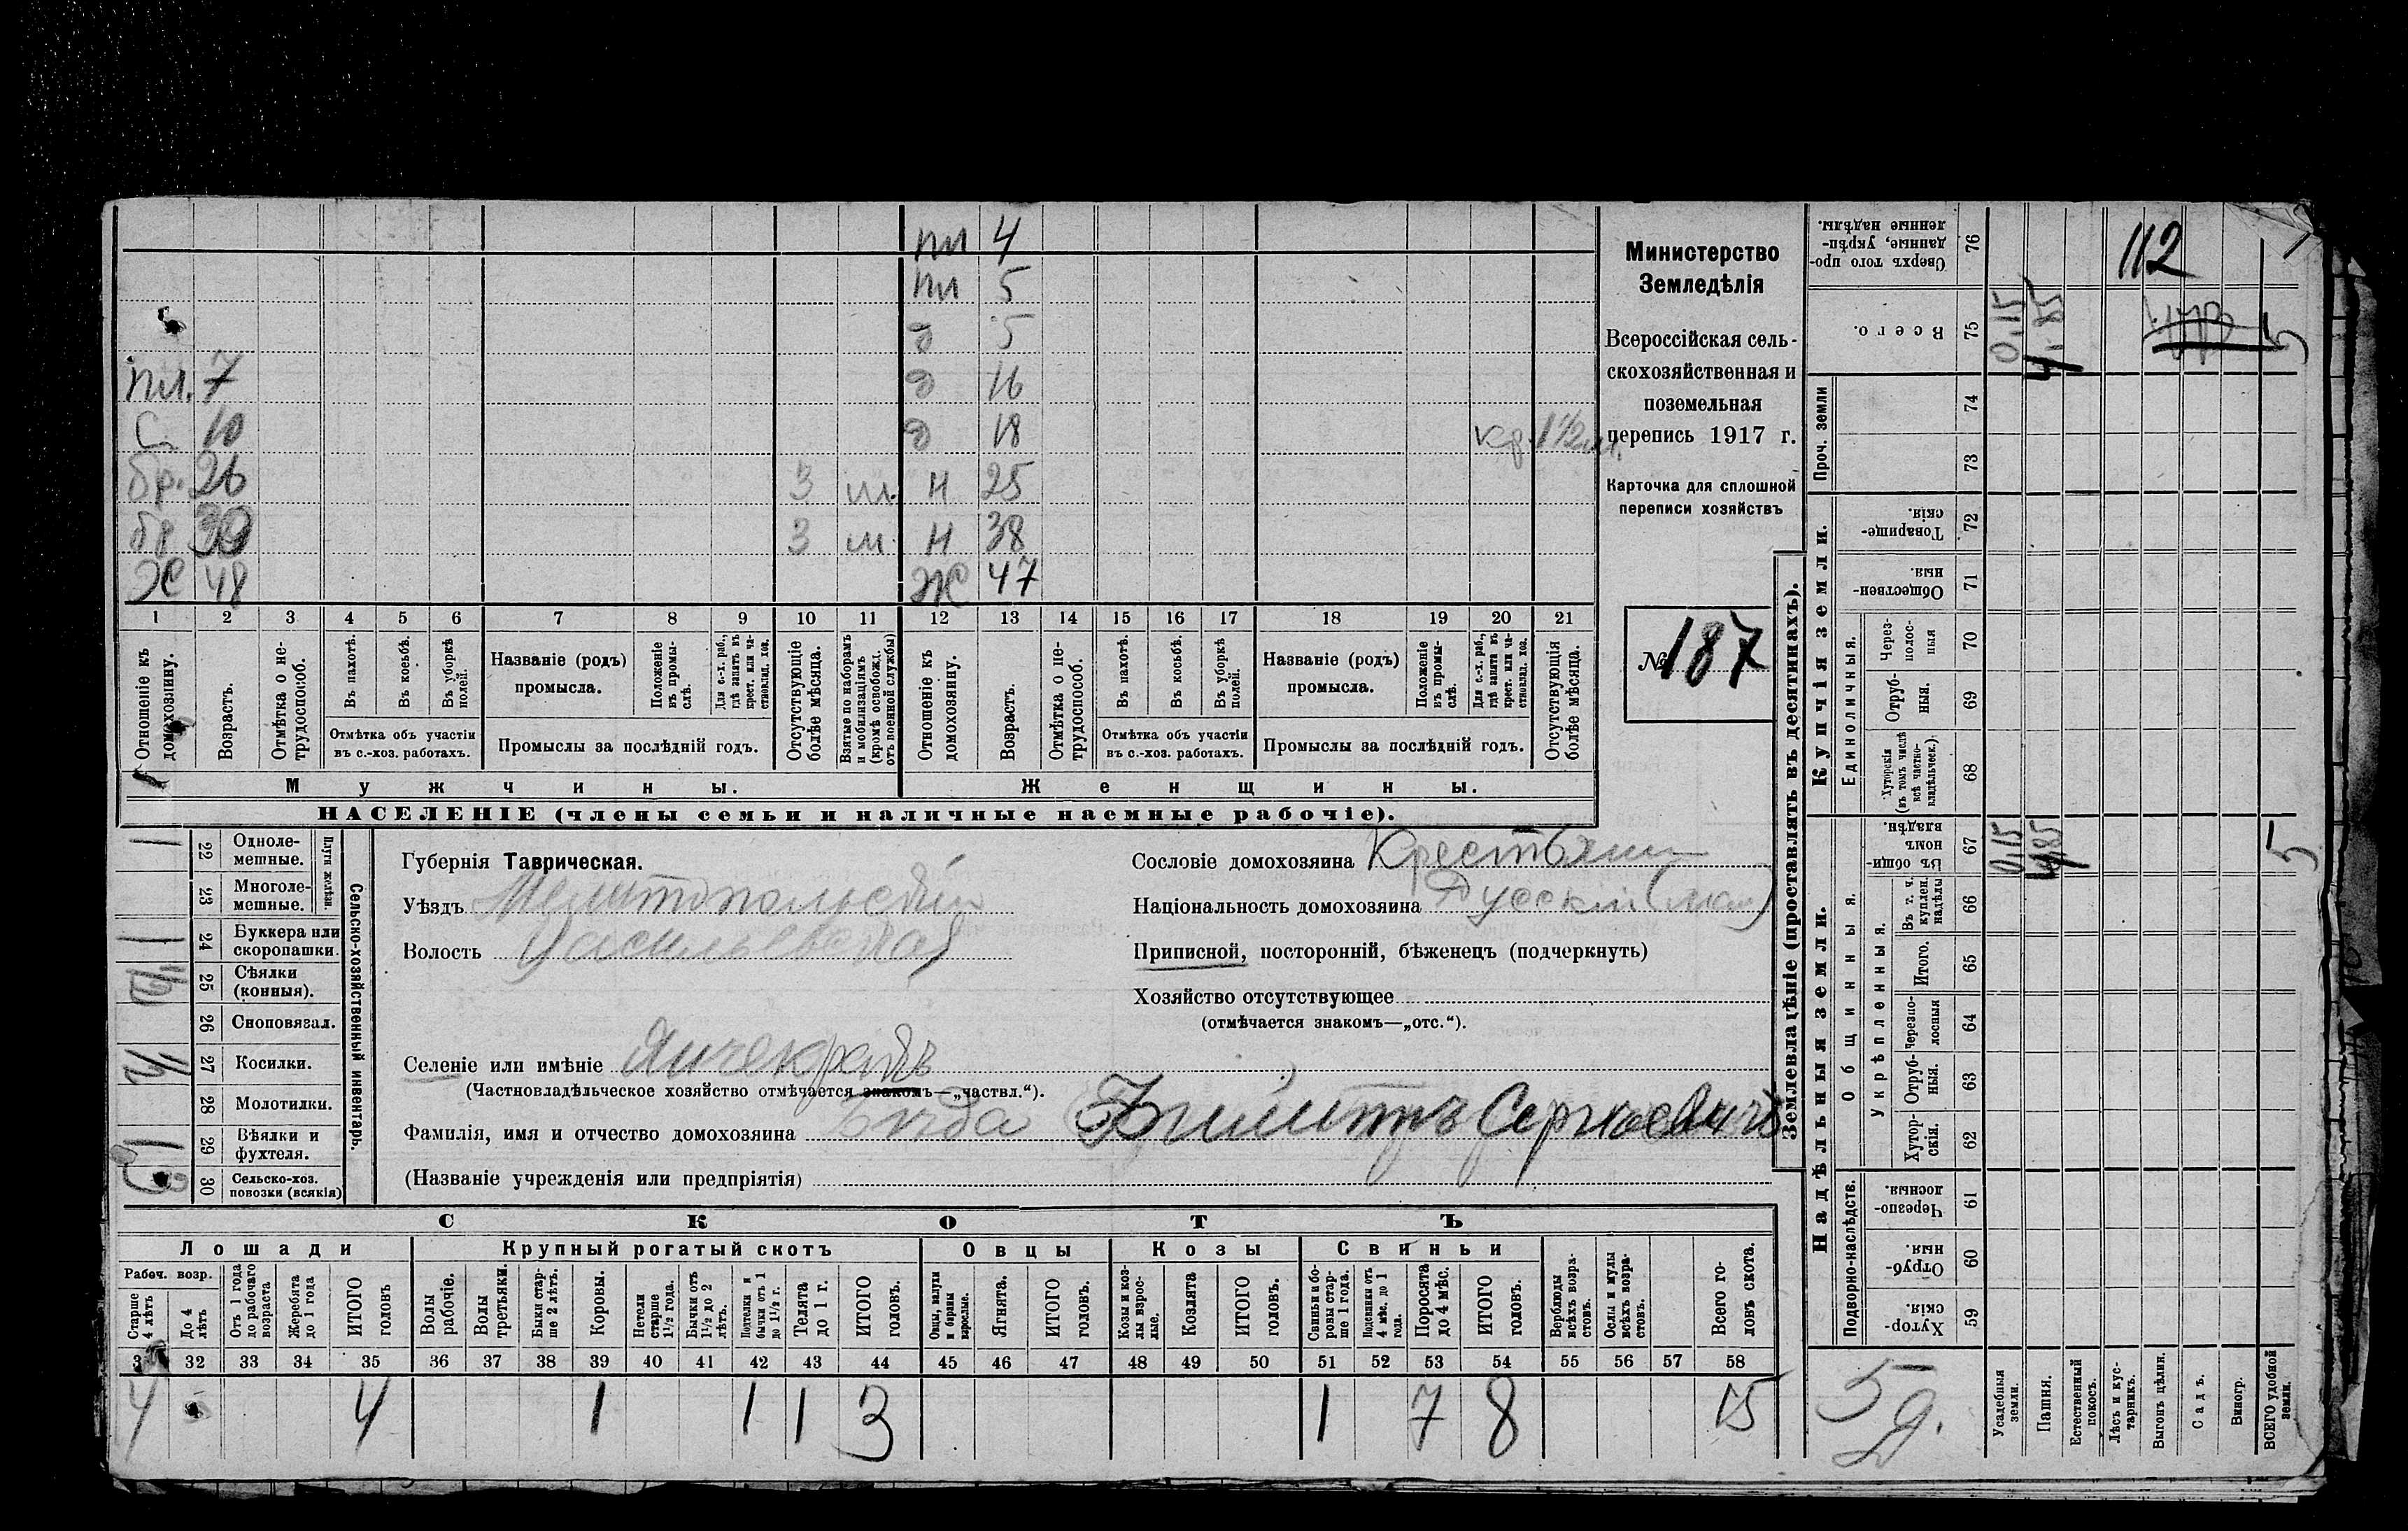 пл 4
пл 5
д 5
пл. 7 д 16
с 10 д 18 кр. 1 1/2 м.
бр. 26 3 м. н 25
бр 30 3 м. н 38
Ж 48 Ж 47
1 2 3 4 5 6 7 8 9 10 11 12 13 14 15 16 17 18 19 20 21
Отношеніе къ домохозяину.
Возрастъ.
Отмѣтка о не-трудоспособ.
Въ пахотѣ.
Въ косьбѣ.
Въ уборкѣ полей.
Отмѣтка объ участіи
въ с.-хоз. работахъ.
Названіе (родъ)
промысла.
Положеніе въ промы-слѣ.
Для с.-х. раб., гдѣ занятъ въ крест. или ча-стновлад. хоз.
Промыслы за послѣдній годъ.
Отсутствующіе болѣе мѣсяца.
Взятые по наборамъ и мобилизаціямъ (кромѣ освобожд. отъ военной службы)
Отношеніе къ домохозяину.
Возрастъ.
Отмѣтка о не-трудоспособ.
Въ пахотѣ.
Въ косьбѣ.
Въ уборкѣ полей.
Отмѣтка объ участіи
въ с.-хоз. работахъ.
Названіе (родъ)
промысла.
Положеніе въ промы-слѣ.
Для с.-х. раб., гдѣ занята въ крест. или ча-стновлад. хоз.
Промыслы за послѣдній годъ.
Отсутствующія болѣе мѣсяца.
Мужчины. Женщины.
НАСЕЛЕНІЕ (члены семьи и наличные наемные рабочіе).
Министерство
Земледѣлія
Всероссійская сель-
скохозяйственная и
поземельная
перепись 1917 г.
Карточка для сплошной
переписи хозяйствъ
№ 187
1 22 Одноле-мешные.
23 Многоле-мешные.
Плуги желѣзн.
1 24 Буккера или скоропашки.
25 Сѣялки (конныя).
26 Сноповязал.
27 Косилки.
28 Молотилки.
1 29 Вѣялки и фухтеля.
30 Сельско-хоз. повозки (всякія)
Сельско-хозяйственный инвентарь.
Губернія Таврическая.
Уѣздъ Мелитопольскій
Волость Васильевская
Селеніе или имѣніе Янчекракъ
(Частновладѣльческое хозяйство отмѣчается знакомъ—„частвл.“).
Фамилія, имя и отчество домохозяина Сергѣевичъ
(Названіе учрежденія или предпріятія)
Сословіе домохозяина Крестьянин
Національность домохозяина Русскій
Приписной, посторонній, бѣженецъ (подчеркнуть)
Хозяйство отсутствующее
(отмѣчается знакомъ—„отс.“).
СКОТЪ
Лошади Крупный рогатый скотъ Овцы Козы Свиньи
Рабоч. возр.
Старше 4 лѣтъ
До 4 лѣтъ
Отъ 1 года до рабочаго возраста
Жеребята до 1 года
ИТОГО головъ
Волы рабочіе.
Волы третьяки.
Быки стар-ше 2 лѣтъ.
Коровы.
Нетели старше 1½ года.
Бычки отъ 1½ до 2 лѣтъ.
Подтелки и бычки отъ 1 до 1½ г.
Телята до 1 г.
ИТОГО головъ.
Овцы, валухи и бараны взрослые.
Ягнята.
ИТОГО головъ.
Козы и коз-лы взрос-лые.
Козлята
ИТОГО головъ.
Свиньи и бо-ровы стар-ше 1 года.
Подсвинки отъ 4 мѣс. до 1 года.
Поросята до 4 мѣс.
ИТОГО головъ.
Верблюды всѣхъ возра-стовъ.
Ослы и мулы всѣхъ возра-стовъ.
Всего го-ловъ скота.
32 33 34 35 36 37 38 39 40 41 42 43 44 45 46 47 48 49 50 51 52 53 54 55 56 57 58
4 4 1 1 1 3 1 7 8 15
Землевладѣніе (проставлять въ десятинахъ).
Купчія земли.
Надѣльныя земли.
Сверхъ того про-данные, укрѣп-ленные надѣлы. 76
112
Всего. 75 0,15 4,85 5
Проч. земли 74
73
Товарище-скія. 72
Обществен-ныя. 71
Единоличныя.
Через-полос-ныя 70
Отруб-ныя. 69
Хуторскія (въ томъ числѣ всѣ частно-владѣльческ.) 68
Общинныя.
Въ общин-номъ владѣн. 67 0,15 4,85 5
Укрѣпленныя.
Въ т. ч. куплен. надѣлы 66
Итого. 65
Черезпо-лосныя 64
Отруб-ныя. 63
Хутор-скія. 62
Подворно-наслѣдств.
Черезпо-лосныя. 61
Отруб-ныя. 60
Хутор-скія. 59
5 д.
Усадебныя земли.
Пашня.
Естественный покосъ.
Лѣсъ и кус-тарникъ.
Выгонъ цѣлин.
Садъ.
Виногр.
ВСЕГО удобной земли.